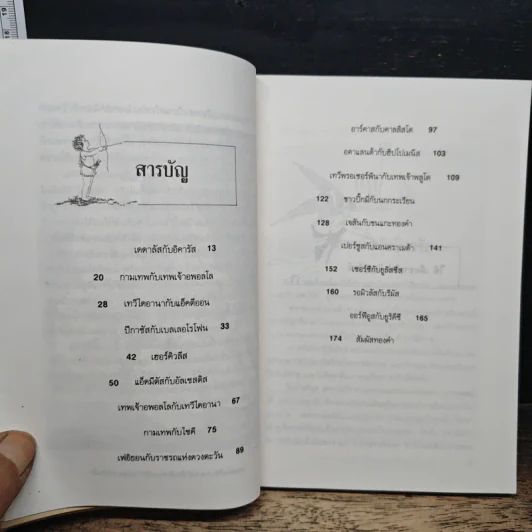 สารบัญ
เดดาลัสกับอิคารัส 13
20 กามเทพกับเทพเจ้าอพอลโล
28 เทวีไดอานากับแอ็คตีออน
ปีกาซัสกับเบลเลอโรโฟน 33
42 เฮอร์คิวลีส
50 แอ็ดมีตัสกับอัลเซสติส
เทพเจ้าอพอลโลกับเทวีไดอานา 67
กามเทพกับไซคี 75
เฟอิธอนกับราชรถแห่งดวงตะวัน 89
อาร์คาสกับคาลลิสโต 97
อตาแลนต้ากับฮิปโปเมนีส 103
เทวีพรอเซอร์พิน่ากับเทพเจ้าพลูโต 109
122 ชาวปิ๊กมี่กับนกกระเรียน
128 เจสันกับขนแกะทองคำ
เปอร์ซูสกับแอนดราเมด้า 141
152 เซอร์ซีกับยูลิสซีส
160 รอมิวลัสกับรีมัส
ออร์ฟิอูสกับยูริดีซี 165
174 สัมผัสทองคำ